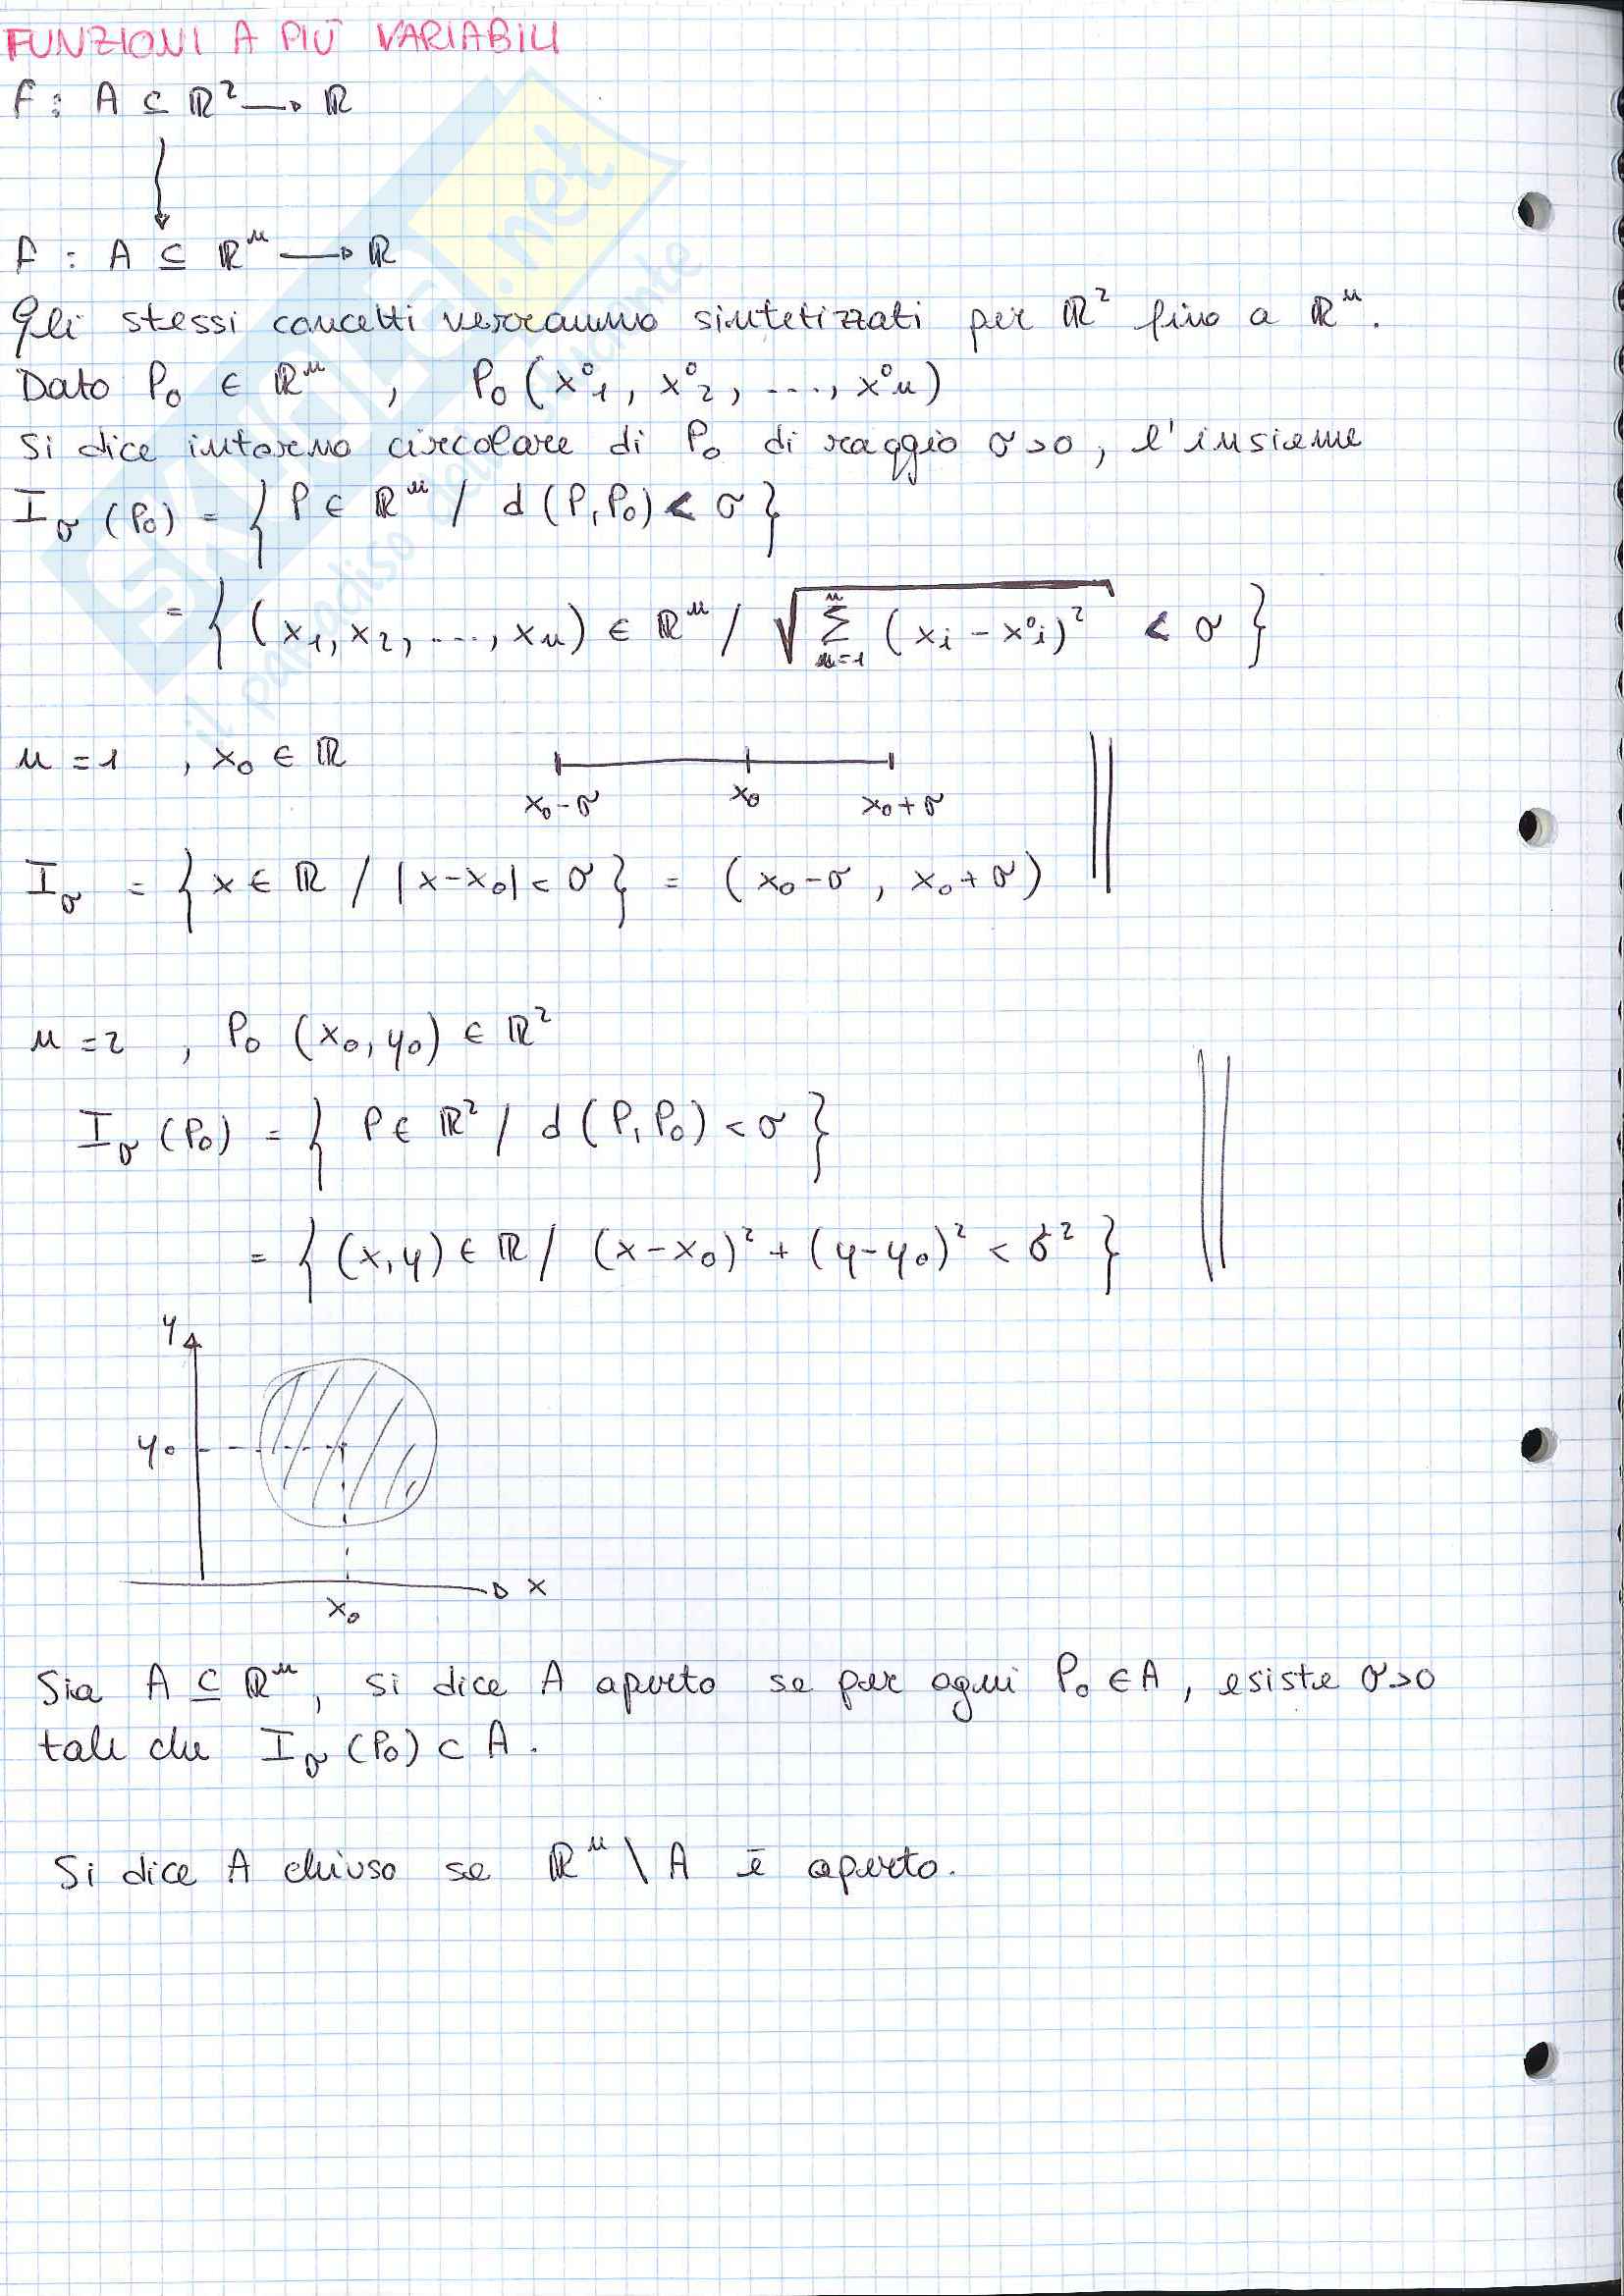 FUNZIONI A PIÙ VARIABILI
f : A ⊆ ℝ² → ℝ
f : A ⊆ ℝⁿ → ℝ
Gli stessi concetti verranno sintetizzati per ℝ² fino a ℝⁿ.
Dato P₀ ∈ ℝⁿ , P₀ (x°₁, x°₂, ...., x°n)
Si dice intorno circolare di P₀ di raggio σ>0, l'insieme
I_σ (P₀) = { P ∈ ℝⁿ / d (P, P₀) < σ }
= { (x₁, x₂, ..., xn) ∈ ℝⁿ / √ Σ_{n=1}^{n} (xi - x°i)² < σ }
n = 1 , x₀ ∈ ℝ
x₀-σ x₀ x₀+σ
I_σ = { x ∈ ℝ / |x-x₀| < σ } = (x₀-σ , x₀+σ)
n = 2 , P₀ (x₀, y₀) ∈ ℝ²
I_σ (P₀) = { P ∈ ℝ² / d (P, P₀) < σ }
= { (x, y) ∈ ℝ / (x-x₀)² + (y-y₀)² < σ² }
y
y₀
x
x₀
Sia A ⊆ ℝⁿ, si dice A aperto se per ogni P₀ ∈ A, esiste σ>0
tale che I_σ (P₀) ⊂ A.
Si dice A chiuso se ℝⁿ \ A è aperto.
SKUOLA.net